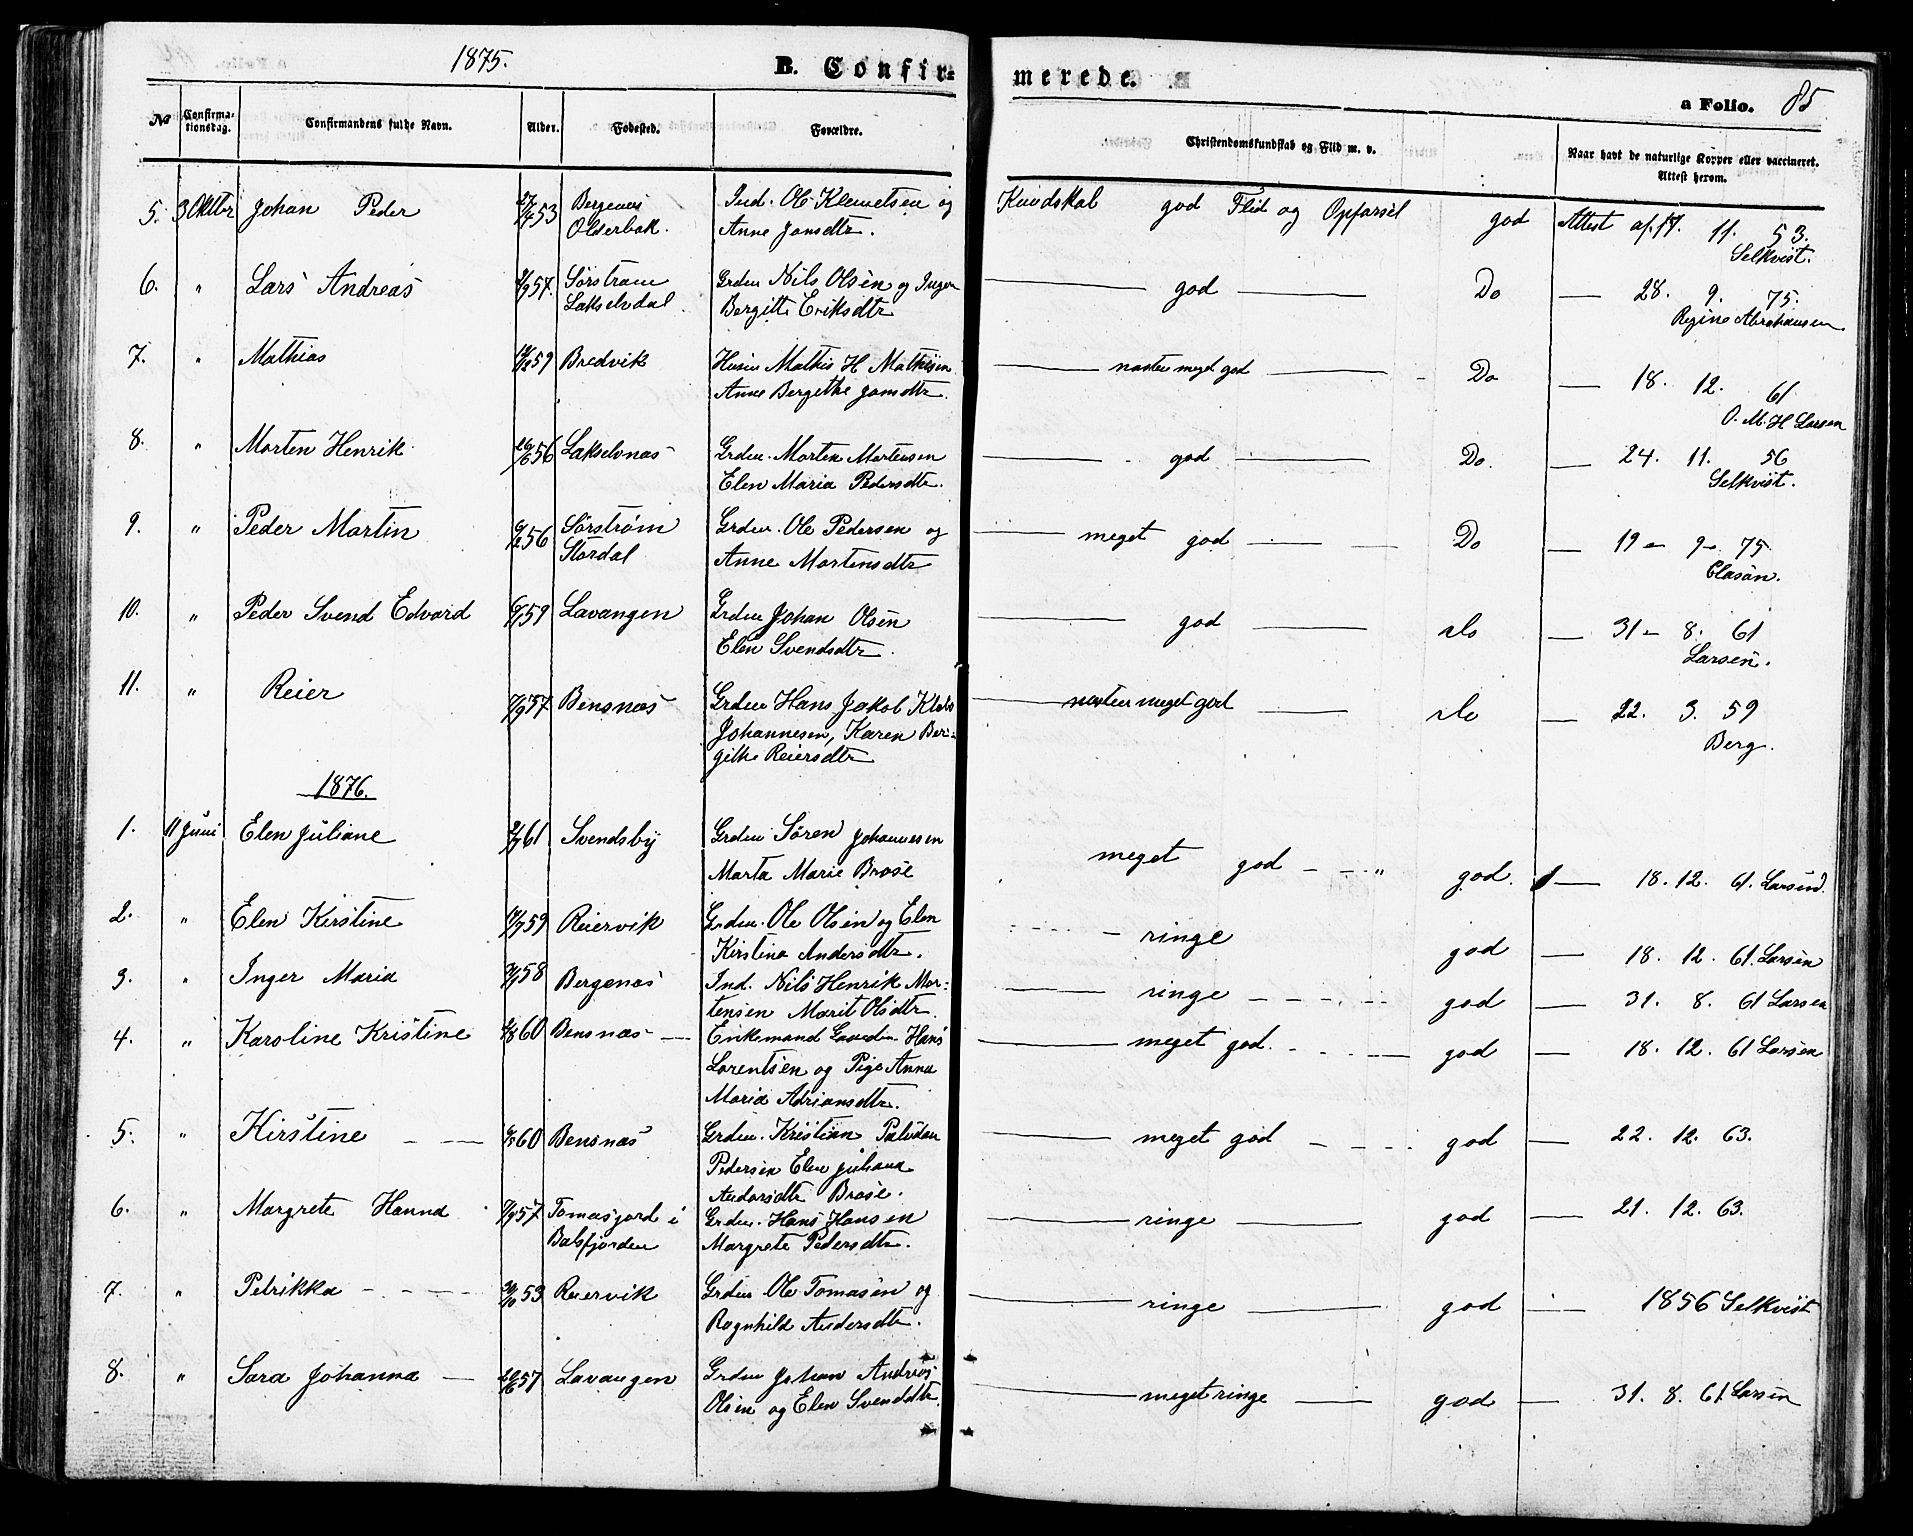 1875.
B. Confirmerede.
a Folio. 85
No Confirmationsdag. Confirmandens fulde Navn. Alder. Fødested. Forældre. Christendomskundskab og Flid m. v. Naar havt de naturlige Kopper eller vaccineret. Attest herom.
5. 3 Oktbr Johan Peder 53 Bergenes Ind. Ole Klemetsen og Kundskab god Flid og Opførsel god Attest af 17. 11. 53.
Olderbak. Anne Jonsdtr. Selkvist.
6. " Lars Andreas 57. Sørstrøm Grdm Nils Olsen og Inger god Do 28. 9. 75.
Lakselvdal Bergitte Eriksdtr Regine Abrahamsen
7. " Mathias 59 Bredvik Husm Mathis H Mathisen næsten meget god Do 18. 12. 61
Anne Bergithe Jonsdtr. O. M. H Larsen
8. " Morten Henrik 56 Lakselvnæs Grdm. Morten Mortensen god Do. 24. 11. 56
Elen Maria Pedersdtr. Selkvist.
9. " Peder Martin 56 Sørstrøm Grdm. Ole Pedersen og meget god Do 19 9 75
Stordal Anne Mortensdtr Clasøn.
10. " Peder Svend Edvard 59 Lavangen Grdm Johan Olsen god do 31 8. 61
Elen Svendsdtr. Larsen.
11. " Reier 57 Bensnæs Grdm Hans Jakob næsten meget god do 22. 3. 59
Johannesen, Karen Ber- Berg.
githe Reiersdtr
1876.
1. 11 Juni Elen Juliane 61 Svendsby Grdm Søren Johannesen meget god " god. 18. 12. 61.
Marta Marie Brose
2. " Elen Kirstine 59 Reiervik Grdm. Ole Olsen og Elen ringe god 18. 12. 61. Larsen
Kirstina Andersdtr.
3. " Inger Maria 58 Bergenæs Ind. Nils Henrik Mor- ringe god 31. 8. 61 Larsen
tensen Marit Olsdtr.
4. " Karoline Kristine 60 Bensnæs Enkemand Hans meget god. god 18. 12. 61 Larsen
Lorentsen og Pige Anna
Maria Adriansdtr.
5. " Kirstine 60 Bensnæs Grdm. Kristian meget god god 22. 12. 63.
Pedersen Elen Juliana
Andersdtr Brose.
6. " Margrete Hanna 57. Tomasjord i Grdm. Hans Hansen ringe god 21. 12. 63.
Balsfjorden Margrete Pedersdtr.
7. " Petrikka 53 Reiervik Grdm Ole Tomasen og ringe god 1856 Selkvist
Ragnhild Andersdtr.
8. " Sara Johanna 57 Lavangen Grdm Johan Andreas meget ringe god 31. 8. 61. Larsen
Olsen og Elen Svendsdtr